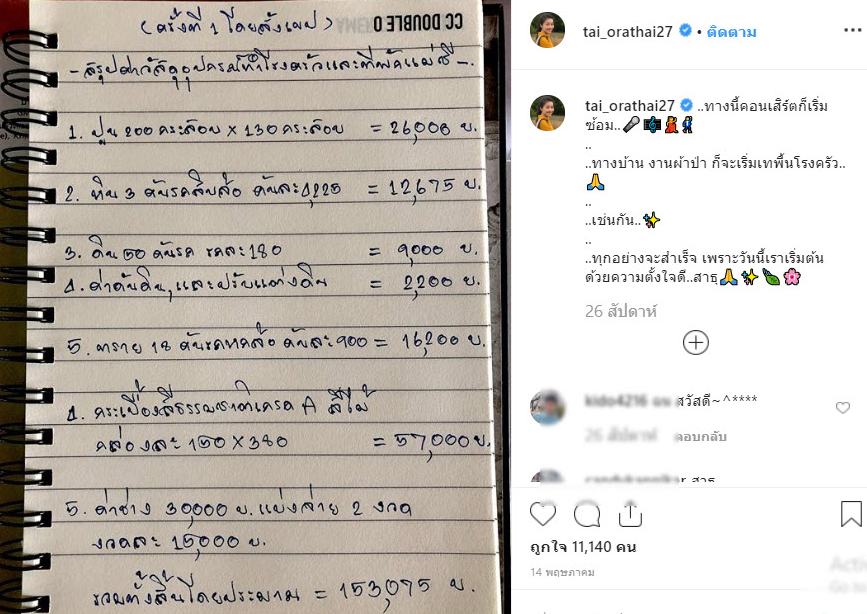 CC DOUBLE O
(ครั้งที่ 1 โดยสังเขป)
- สรุปค่าวัสดุอุปกรณ์ทำโรงครัวและที่พักแม่ชี -.
1. ปูน 200 กระสอบ X 130 กระสอบ = 26,000 บ.
2. หิน 3 คันรถสิบล้อ คันละ 4,225 = 12,675 บ.
3. ดิน 50 คันรถ รถละ 180 = 9,000 บ.
4. ค่าดันดิน, และปรับแต่งดิน = 2,200 บ.
5. ทราย 18 คันรถหกล้อ คันละ 900 = 16,200 บ.
4. กระเบื้องสีธรรมชาติเกรด A สีไม้
กล่องละ 150 X 380 = 57,000 บ.
5. ค่าช่าง 30,000 บ. แบ่งจ่าย 2 งวด
งวดละ 15,000 บ.
รวมทั้งสิ้นโดยประมาณ = 153,075 บ.
tai_orathai27 • ติดตาม
tai_orathai27 ..ทางนี้คอนเสิร์ตก็เริ่ม
ซ้อม..🎤🎼💃🕺
..
..ทางบ้าน งานผ้าป่า ก็จะเริ่มเทพื้นโรงครัว..
🙏
..
..เช่นกัน..✨
..
..ทุกอย่างจะสำเร็จ เพราะวันนี้เราเริ่มต้น
ด้วยความตั้งใจดี..สาธุ🙏✨🍃🌸
26 สัปดาห์
kido4216 สวัสดี~^****
26 สัปดาห์ ตอบกลับ
ถูกใจ 11,140 คน
14 พฤษภาคม